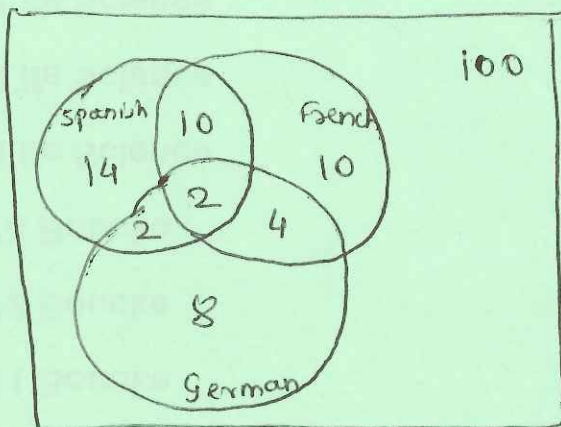 100
Spanish
10
French
14
10
2
2
4
8
German